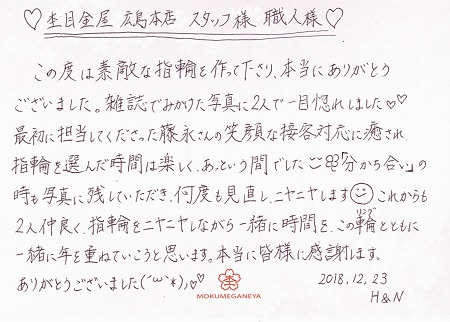 ♡杢目金屋 広島本店 スタッフ様 職人様♡
この度は素敵な指輪を作って下さり、本当にありがとう
ございました。雑誌でみかけた写真に2人で一目惚れしました♡♡
最初に担当してくださった藤永さんの笑顔な接客対応に癒され、
指輪を選んだ時間は楽しく、あっという間でした「分かち合い」の
時も写真に残していただき、何度も見直し、ニヤニヤします これからも
2人仲良く、指輪をニヤニヤしながら一緒に時間を、この輪とともに
リング
一緒に年を重ねていこうと思います。本当に皆様に感謝します。
ありがとうございました(´ω`*)♡♡
2018.12.23
H&N
MOKUMEGANEYA